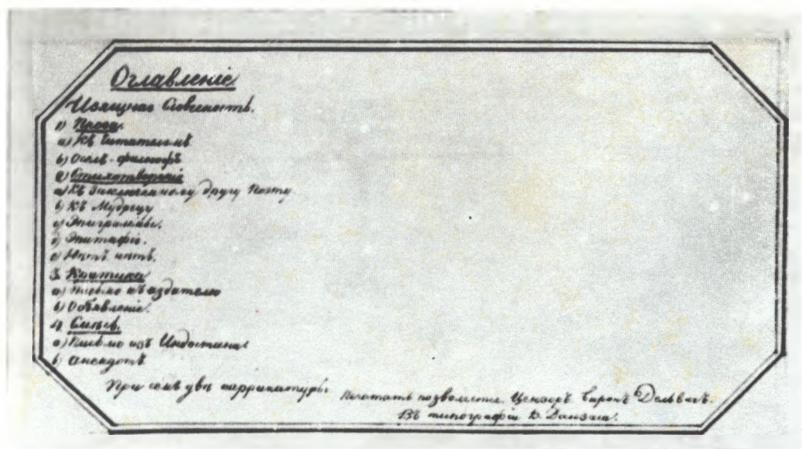 Оглавленіе
Изящная Словесность.
1) Проза.
а) Къ Читателямъ
b) Оселъ-философъ
2) Стихотворенія
а) Къ Заключенному другу Поэту.
b) Къ Мудрецу
с) Эпиграммы.
д) Эпитафіи.
е)
3. Критика
а) Письмо къ издателю
b) Объявленіе.
4. Смѣсь.
а) Письмо изъ Индостана.
b) Анекдотъ
При семъ двѣ карриккатуры.
Печатать позволяется. Цензоръ Баронъ Дельвигъ.
Въ типографіи К. Данзаса.